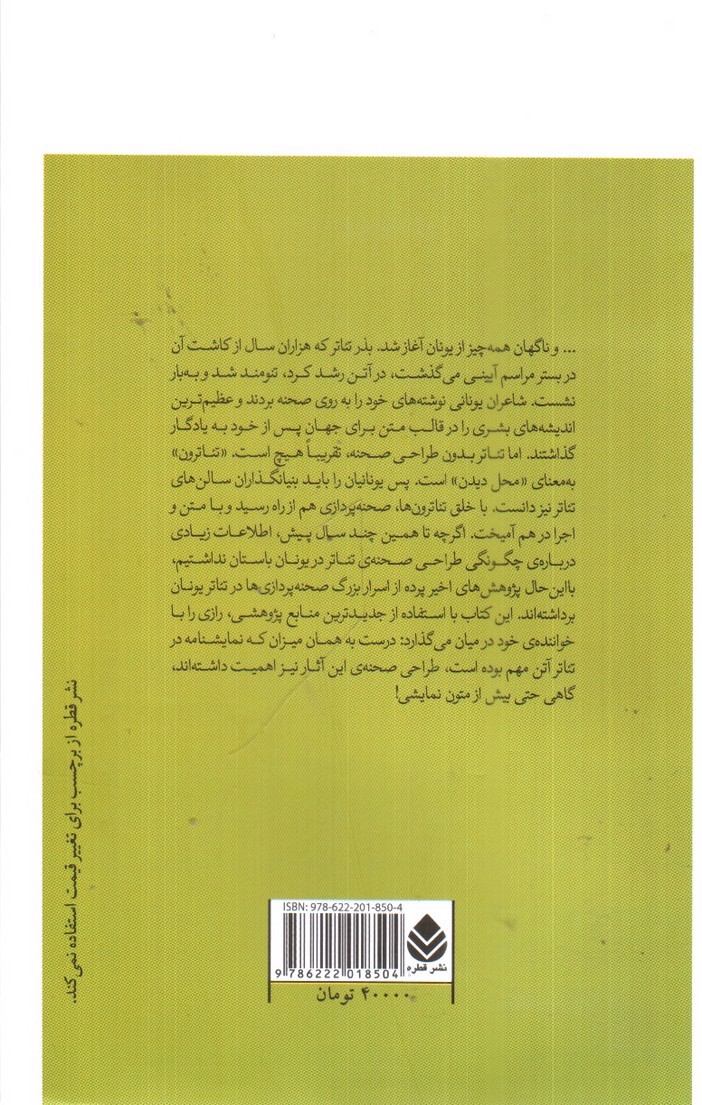 ... و ناگهان همه‌چیز از یونان آغاز شد. بذر تئاتر که هزاران سال از کاشت آن
در بستر مراسم آیینی می‌گذشت، در آتن رشد کرد، تنومند شد و به‌بار
نشست. شاعران یونانی نوشته‌های خود را به روی صحنه بردند و عظیم‌ترین
اندیشه‌های بشری را در قالب متن برای جهان پس از خود به یادگار
گذاشتند. اما تئاتر بدون طراحی صحنه، تقریباً هیچ است. «تئاترون»
به‌معنای «محل دیدن» است. پس یونانیان را باید بنیانگذاران سالن‌های
تئاتر نیز دانست. با خلق تئاترون‌ها، صحنه‌پردازی هم از راه رسید و با متن و
اجرا در هم آمیخت. اگرچه تا همین چند سال پیش، اطلاعات زیادی
درباره‌ی چگونگی طراحی صحنه‌ی تئاتر در یونان باستان نداشتیم،
بااین‌حال پژوهش‌های اخیر پرده از اسرار بزرگ صحنه‌پردازی‌ها در تئاتر یونان
برداشته‌اند. این کتاب با استفاده از جدیدترین منابع پژوهشی، رازی را با
خواننده‌ی خود در میان می‌گذارد: درست به همان میزان که نمایشنامه در
تئاتر آتن مهم بوده است، طراحی صحنه‌ی این آثار نیز اهمیت داشته‌اند،
گاهی حتی بیش از متون نمایشی!
نشر قطره از برچسب برای تغییر قیمت استفاده نمی‌کند.
ISBN: 978-622-201-850-4
نشر قطره
9 786222 018504
۴۰۰۰۰ تومان